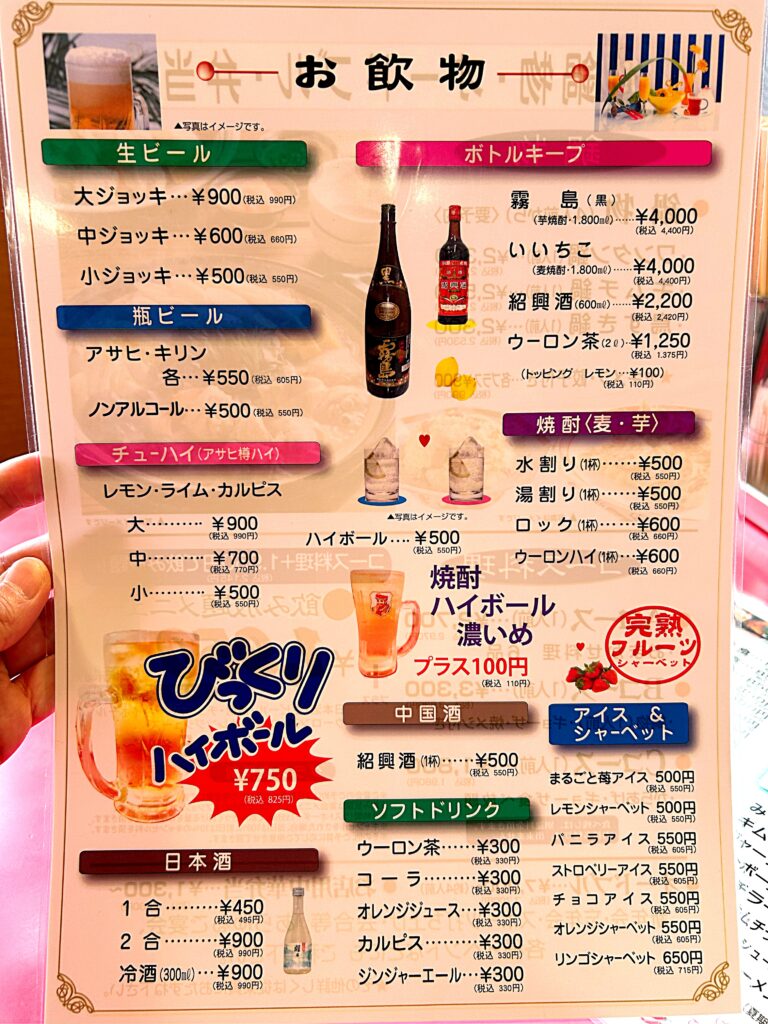 お飲物
▲写真はイメージです。
生ビール
大ジョッキ…¥900(税込 990円)
中ジョッキ…¥600(税込 660円)
小ジョッキ…¥500(税込 550円)
瓶ビール
アサヒ・キリン
各…¥550(税込 605円)
ノンアルコール…¥500(税込 550円)
チューハイ(アサヒ樽ハイ)
レモン・ライム・カルピス
大………… ¥900
(税込 990円)
中………… ¥700
(税込 770円)
小………… ¥500
(税込 550円)
びっくり
ハイボール
¥750
(税込 825円)
日本酒
1合………¥450
(税込 495円)
2合………¥900
(税込 990円)
冷酒(300㎖)…¥900
(税込 990円)
ボトルキープ
霧島(黒)
(芋焼酎・1.800㎖)……¥4,000
(税込 4,400円)
いいちこ
(麦焼酎・1.800㎖)……¥4,000
(税込 4,400円)
紹興酒(600㎖)…¥2,200
(税込 2,420円)
ウーロン茶(2ℓ)…¥1,250
(税込 1.375円)
(トッピング レモン…¥100)
(税込 110円)
黒
霧島
▲写真はイメージです。
ハイボール….¥500
(税込 550円)
焼酎〈麦・芋〉
水割り(1杯)……¥500
(税込 550円)
湯割り(1杯)……¥500
(税込 550円)
ロック(1杯)……¥600
(税込 660円)
ウーロンハイ(1杯)…¥600
(税込 660円)
焼酎
ハイボール
濃いめ
プラス100円
(税込 110円)
中国酒
紹興酒(1杯)…¥500
(税込 550円)
ソフトドリンク
ウーロン茶……¥300
(税込 330円)
コーラ………¥300
(税込 330円)
オレンジジュース…¥300
(税込 330円)
カルピス………¥300
(税込 330円)
ジンジャーエール…¥300
(税込 330円)
完熟
フルーツ
シャーベット
アイス &
シャーベット
まるごと苺アイス 500円
(税込 550円)
レモンシャーベット 500円
(税込 550円)
バニラアイス 550円
(税込 605円)
ストロベリーアイス 550円
(税込 605円)
チョコアイス 550円
(税込 605円)
オレンジシャーベット 550円
(税込 605円)
リンゴシャーベット 650円
(税込 715円)